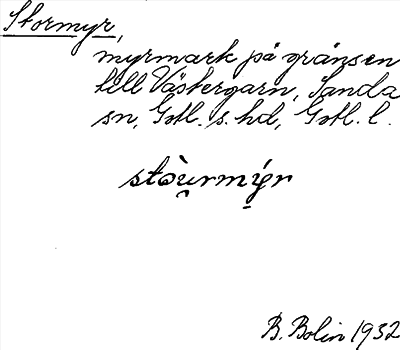 Stormyr,
myrmark på gränsen
till Västergarn, Sanda
sn, Gotl. s. hd, Gotl. l.
stòu̯rmý̩r
B. Bolin 1932